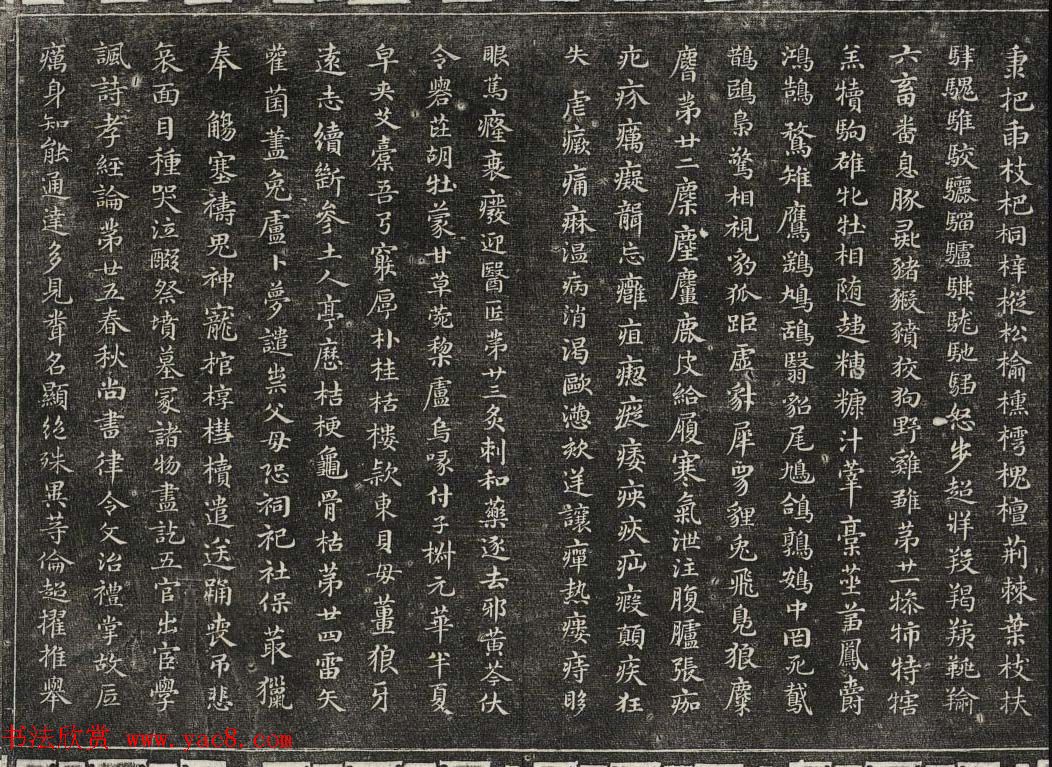 秉把臿枝杷桐梓樅松榆櫄樗槐檀荊棘葉枝扶
騂騩騅駮驪騮驢騏駹馳騷怒步超牂羖羯羠羜羭
六畜番息豚彘豬豭豶狡狗野雞雖第廿一㹂㹑特犗
羔犢駒雄牝牡相随趨糟糠汁滓稾莝芻鳳爵
鴻鵠鶩雉鷹鷂鳩鴰翳貂尾鳩鴿鶉鴳中罔死戴
鵲鴟梟驚相視豹狐距虛豺犀兕貍兔飛鳧狼麋
麐第廿二麇麈麠麀皮給履寒氣泄注腹臚張痂
疕疥癘癡聾忘癰疽瘛瘲痿疾疝瘕顛疾狂
失 虐瘚痛痳温病消渴歐懣欬逆讓癉熱瘻痔眵
眼篤癃衰癈迎醫匠第廿三灸刺和藥逐去邪黄芩伏
令礜茈胡牡蒙甘草菀藜蘆烏喙付子椒元華半夏
皁夾艾橐吾弓窮厚朴桂栝樓款東貝母薑狼牙
遠志續斷參土人亭歷桔梗龜骨枯第廿四雷矢
雚菌藎兔盧卜夢譴祟父母恐祠祀社保菆獵
奉 觴塞禱鬼神寵棺椁槥櫝遣送踊喪弔悲
哀面目種哭泣醊祭墳墓冢諸物盡訖五官出宦學
諷詩孝經論第廿五春秋尚書律令文治禮掌故砥
癘身知能通達多見聞名顯絕殊異等倫超擢推舉
书法欣赏 www.yac8.com